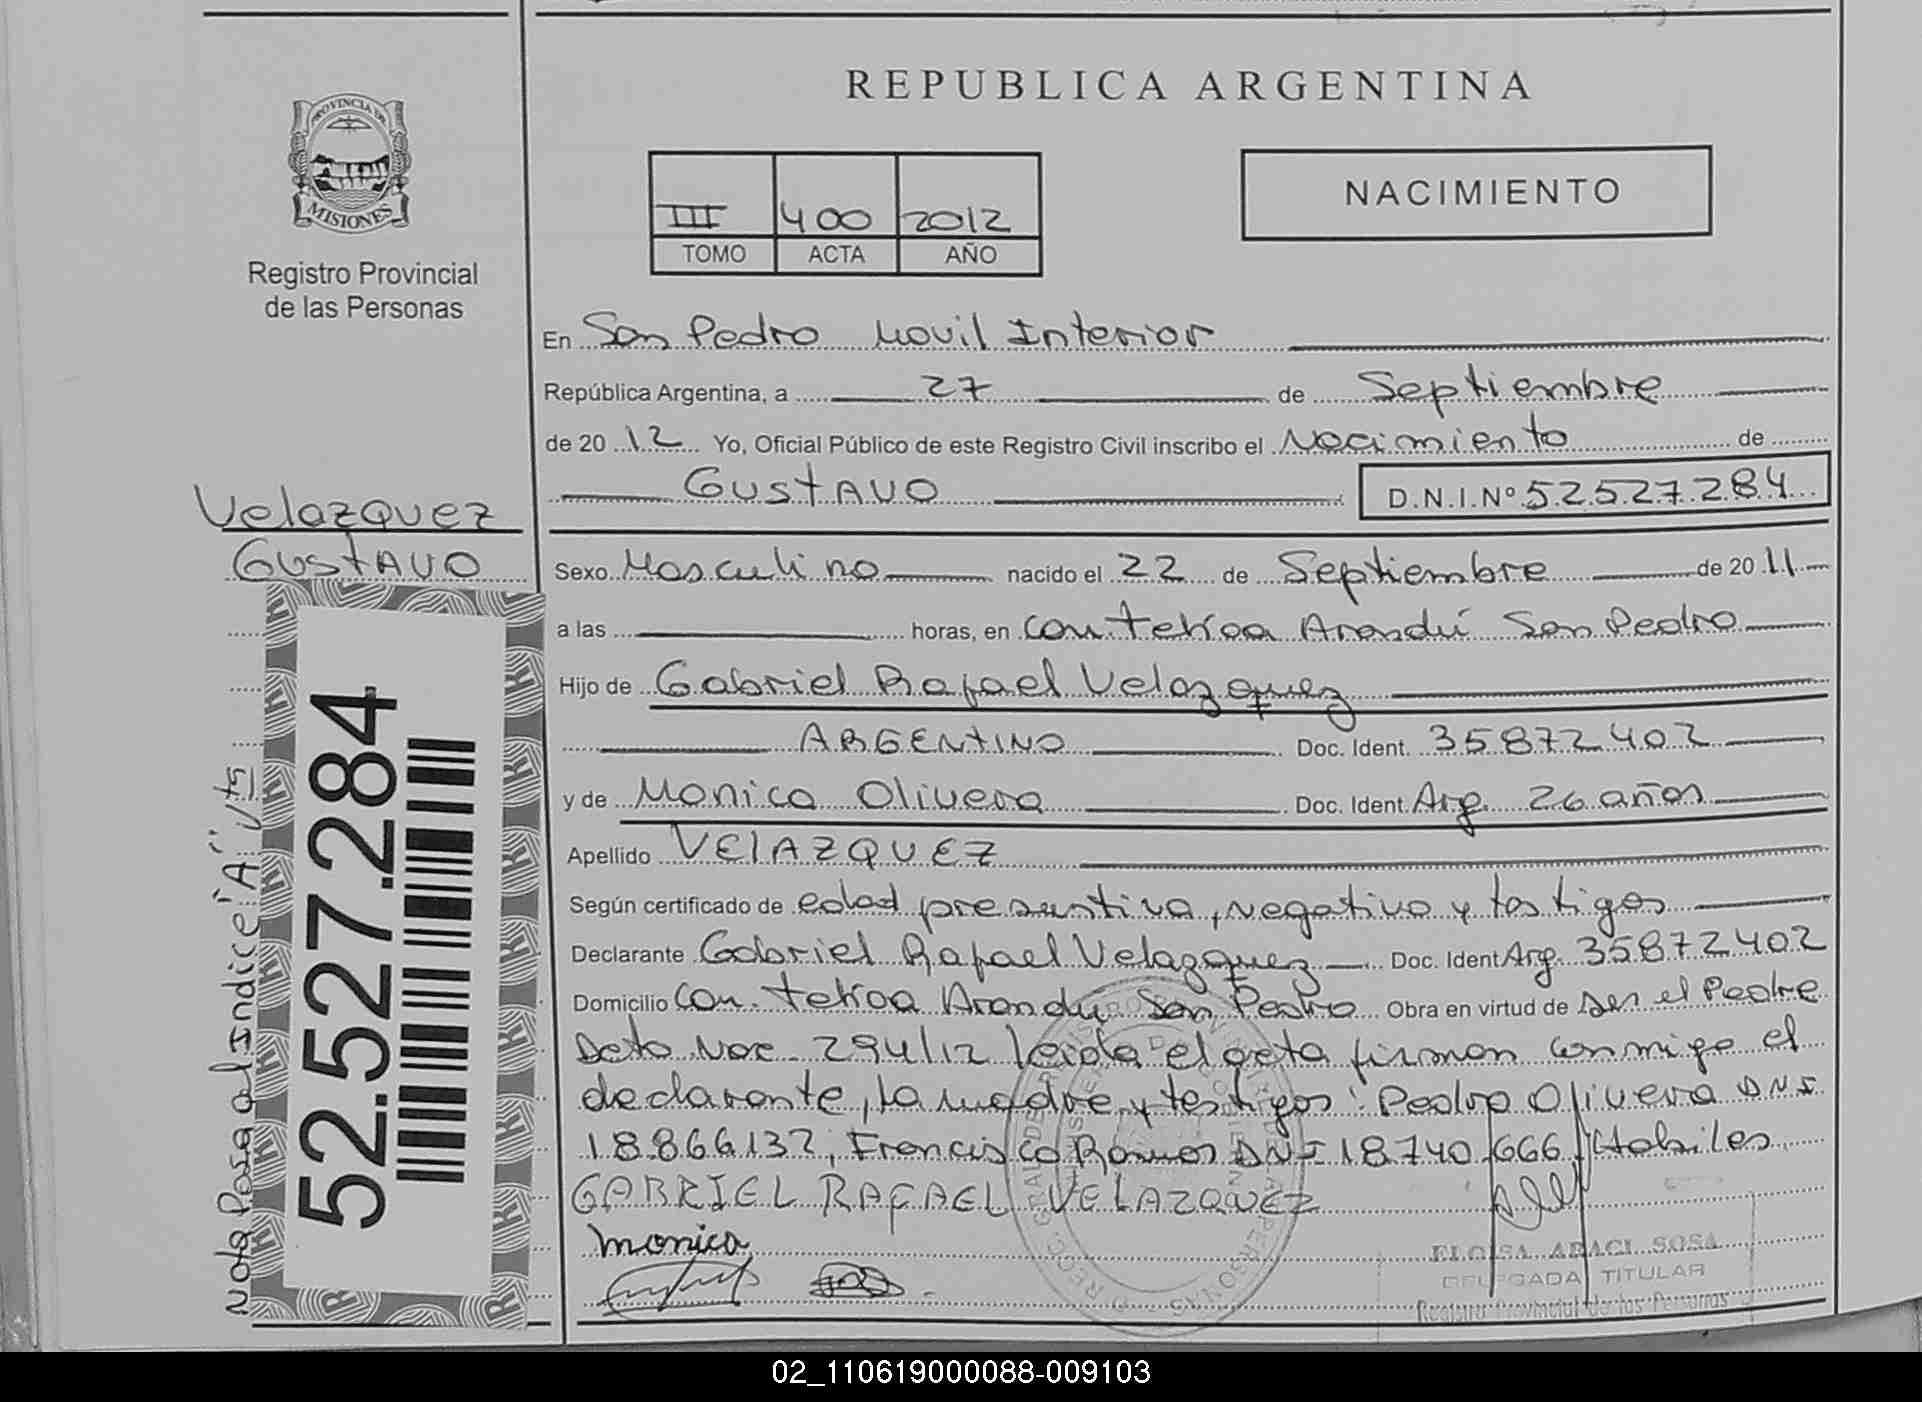 REPUBLICA ARGENTINA
PROVINCIA DE
MISIONES
Registro Provincial
de las Personas
III 400 2012
TOMO ACTA AÑO
NACIMIENTO
En San Pedro Movil Interior
República Argentina, a 27 de Septiembre
de 20 12 Yo, Oficial Público de este Registro Civil inscribo el Nacimiento de
GUSTAVO D.N.I.Nº 52.527.284
Velazquez
GUSTAVO
Sexo Masculino nacido el 22 de Septiembre de 20 11
a las horas, en Com. Tekoa Arandú San Pedro
Hijo de Gabriel Rafael Velazquez
ARGENTINO Doc. Ident. 35872402
y de Monica Olivera Doc. Ident. Arg. 26 años
Apellido VELAZQUEZ
Según certificado de edad presuntiva, negativo y testigos
Declarante Gabriel Rafael Velazquez Doc. Ident Arg. 35872402
Domicilio Com. Tekoa Arandu San Pedro Obra en virtud de ser el Padre
Dcto Nro 294/12 leida el acta firman conmigo el
declarante, la madre y testigos: Pedro Olivera DNI
18866132, Francisco Ramos DNI 18740666 Habiles
GABRIEL RAFAEL VELAZQUEZ
monica
ELOISA ARACI SOSA
DELEGADA TITULAR
Registro Provincial de las Personas
52.527.284
Nota Pasa al Indice "A"
02_110619000088-009103